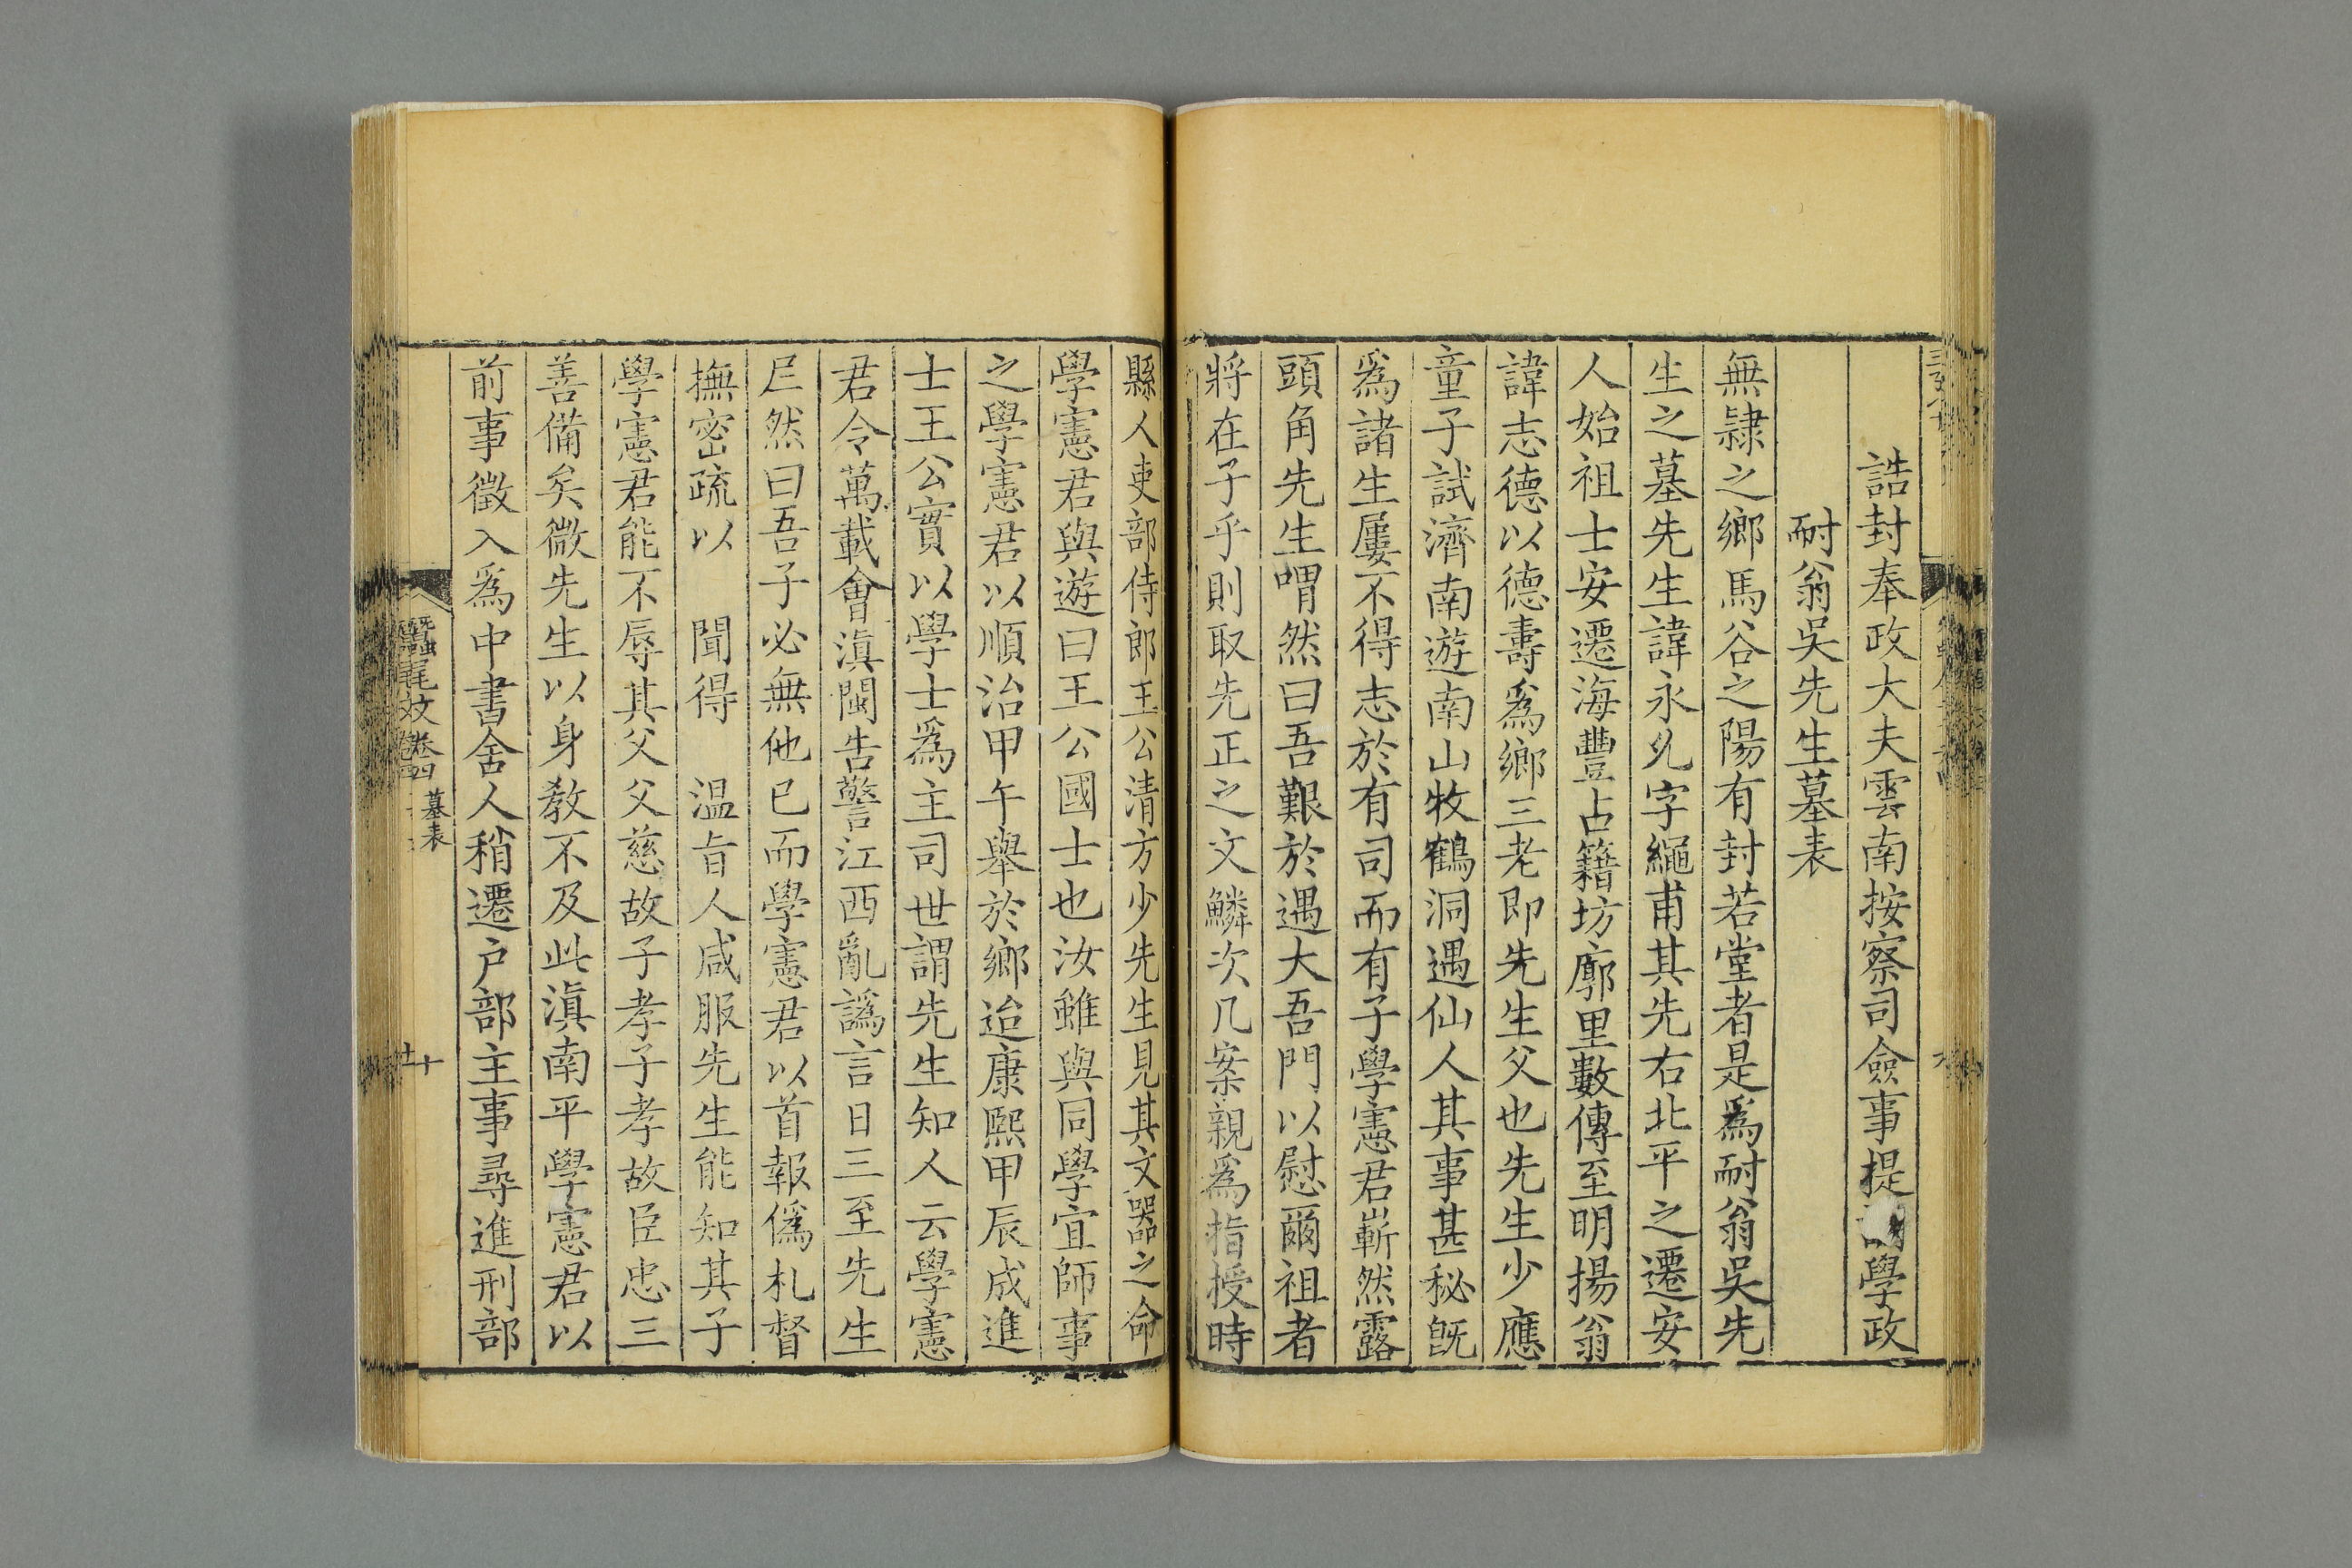 誥封奉政大夫雲南按察司僉事提學政
耐翁吳先生墓表
無隷之鄉馬谷之陽有封若堂者是爲耐翁吳先
生之墓先生諱永字繩甫其先右北平之遷安
人始祖士安遷海豐占籍坊廓里數傳至明揚翁
諱志德以德壽爲鄉三老即先生父也先生少應
童子試濟南遊南山牧鶴洞遇仙人其事甚秘旣
爲諸生屢不得志於有司而有子學憲君嶄然露
頭角先生喟然曰吾艱於遇大吾門以慰爾祖者
將在子乎則取先正之文鱗次几案親爲指授時
縣人吏部侍郎王公清方少先生見其文器之命
學憲君與遊曰王公國士也汝雖與同學宜師事
之學憲君以順治甲午舉於鄉迨康熙甲辰成進
士王公實以學士爲主司世謂先生知人云學憲
君令萬載會滇閩告警江西亂譌言日三至先生
㠯然曰吾子必無他已而學憲君以首報僞札督
撫密疏以 聞得 温旨人咸服先生能知其子
學憲君能不辱其父父慈故子孝子孝故臣忠三
善備矣微先生以身教不及此滇南平學憲君以
前事徵入爲中書舍人稍遷户部主事尋進刑部
蠶尾文 卷四 墓表
十